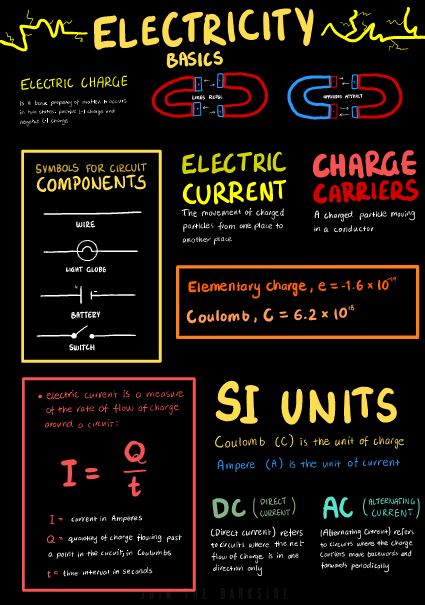 ELECTRICITY
BASICS
ELECTRIC CHARGE
Is a basic property of matter. It occurs
in two states: positive (+) charge and
negative (-) charge
LIKES REPEL
OPPOSITES ATTRACT
SYMBOLS FOR CIRCUIT
COMPONENTS
WIRE
LIGHT GLOBE
BATTERY
SWITCH
ELECTRIC
CURRENT
The movement of charged
particles from one place to
another place
CHARGE
CARRIERS
A charged particle moving
in a conductor
Elementary charge, e = -1.6 × 10⁻¹⁹
Coulomb, C = 6.2 × 10¹⁸
• electric current is a measure
of the rate of flow of charge
around a circuit:
I = Q/t
I = current in Amperes
Q = quantity of charge flowing past
a point in the circuit, in Coulombs
t = time interval in seconds
SI UNITS
Coulomb (C) is the unit of charge
Ampere (A) is the unit of current
DC (DIRECT CURRENT)
(Direct current) refers
to circuits where the net
flow of charge is in one
direction only
AC (ALTERNATING CURRENT)
(Alternating Current) refers
to circuits where the charge
carriers move backwards and
forwards periodically
JOIN THE DARKSIDE